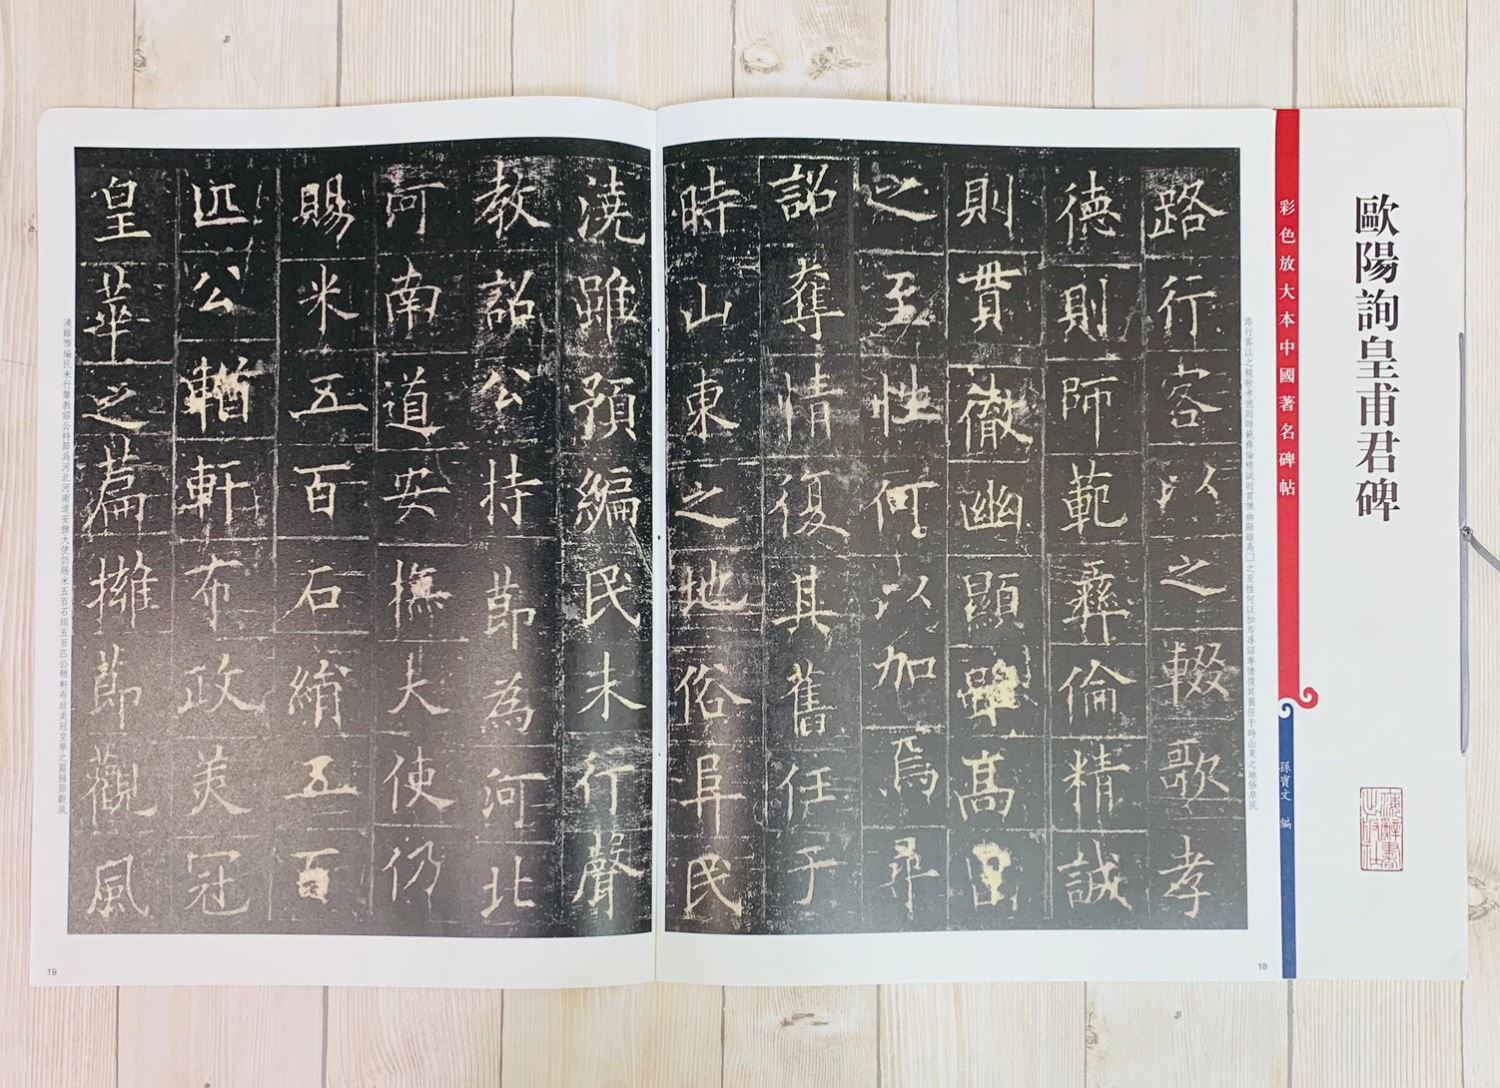 歐陽詢皇甫君碑
彩色放大本中國著名碑帖
孫寶文 編
路行客以之輟歌孝
德則師範彝倫精誠
則貫徹幽顯雖高
之至性何以加焉尋
詔奪情復其舊任于
時山東之地俗阜民
路行客以之輟歌孝德則師範彝倫精誠則貫徹幽顯雖高□之至性何以加焉尋詔奪情復其舊任于時山東之地俗阜民
18
澆雖預編民未行聲
教詔公持節為河北
河南道安撫大使仍
賜米五百石絹五百
匹公輶軒布政美冠
皇華之篇擁節觀風
澆雖預編民未行聲教詔公持節爲河北河南道安撫大使仍賜米五百石絹五百匹公輶軒布政美冠皇華之篇擁節觀風
19